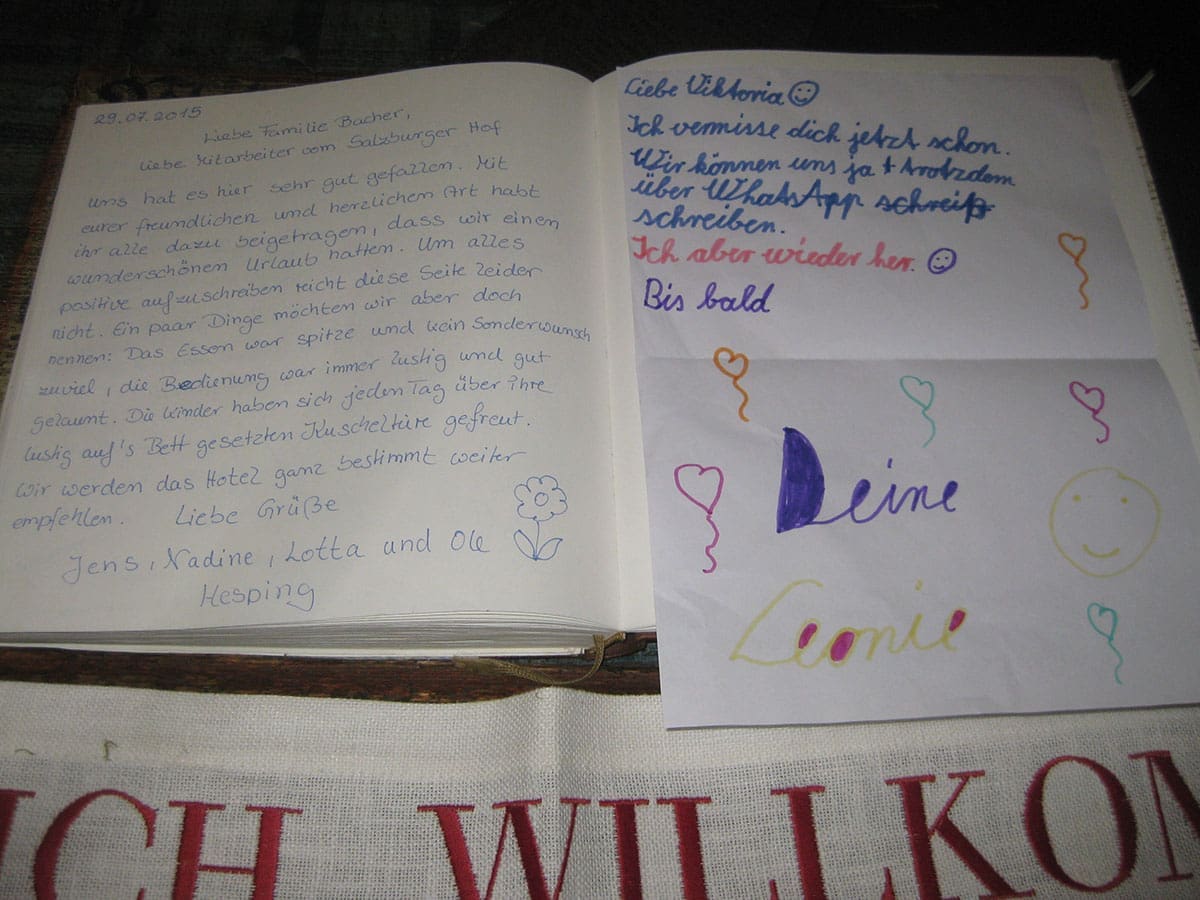 29.07.2015
Liebe Familie Bacher,
Liebe Mitarbeiter vom Salzburger Hof
uns hat es hier sehr gut gefallen. Mit
eurer freundlichen und herzlichen Art habt
ihr alle dazu beigetragen, dass wir einen
wunderschönen Urlaub hatten. Um alles
positive aufzuschreiben reicht diese Seite leider
nicht. Ein paar Dinge möchten wir aber doch
nennen: Das Essen war spitze und kein Sonderwunsch
zuviel, die Bedienung war immer lustig und gut
gelaunt. Die Kinder haben sich jeden Tag über ihre
lustig auf's Bett gesetzten Kuscheltiere gefreut.
Wir werden das Hotel ganz bestimmt weiter
empfehlen. Liebe Grüße
Jens, Nadine, Lotta und Ole
Hesping
Liebe Viktoria
Ich vermisse dich jetzt schon.
Wir können uns ja
über WhatsApp schreiß
schreiben.
Ich aber wieder her.
Bis bald
Deine
Leonie
ICH WILLKOM